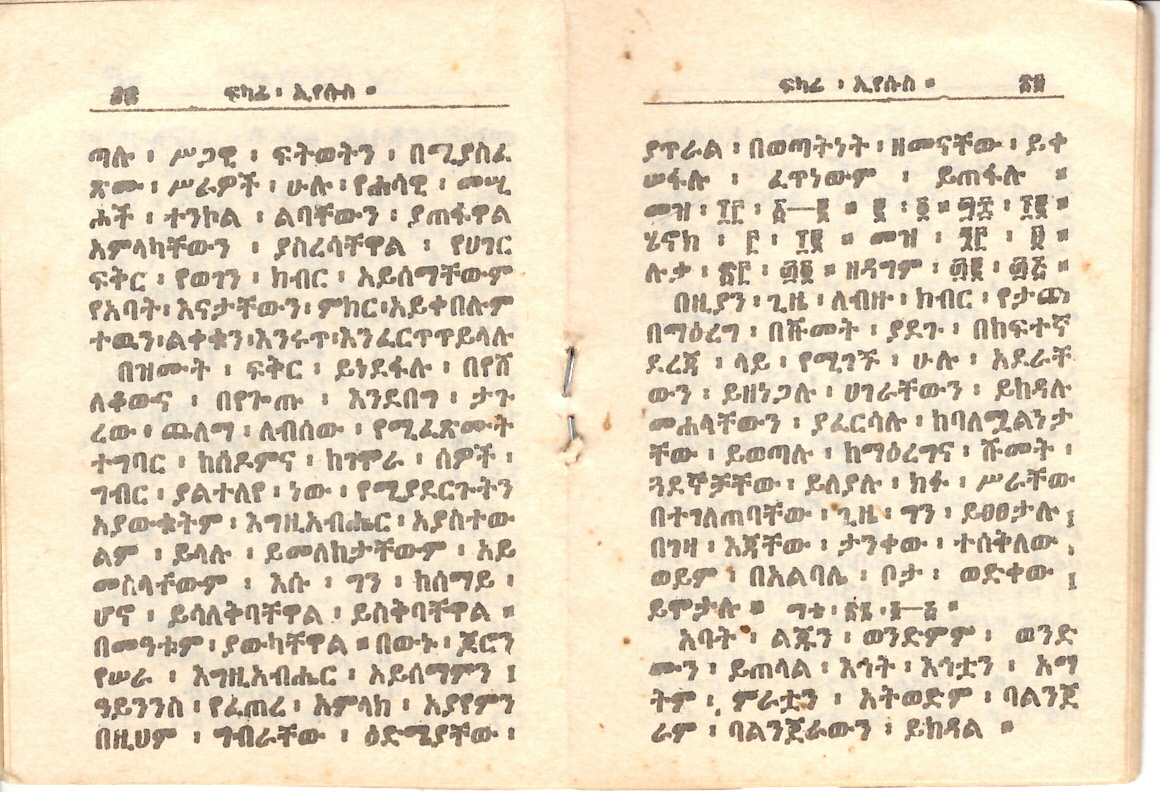 ፍካሬ ፡ ኢየሱስ ።
ጣሉ ፡ ሥጋዊ ፡ ፍትወትን ፡ በሚያስፈ
ጽሙ ፡ ሥራዎች ፡ ሁሉ ፡ የሕሳዊ ፡ መሢ
ሖች ፡ ተንኮል ፡ ልባቸውን ፡ ያጠፋዋል
አምላካቸውን ፡ ያስረሳቸዋል ፡ የሀገር
ፍቅር ፡ የወገን ፡ ክብር ፡ አይሰማቸውም
የአባት ፡ እናታቸውን ፡ ምክር ፡ አይቀበሉም
ተዉን ፡ ልቀቁን ፡ እንሩጥ ፡ እንፈርጥጥ ይላሉ
በዝሙት ፡ ፍቅር ፡ ይነደፋሉ ፡ በየሸ
ለቆውና ፡ በየጉጡ ፡ እንደበግ ፡ ታጉ
ረው ፡ ጨለማ ፡ ለብሰው ፡ የሚፈጽሙት
ተግባር ፡ ከሰዶምና ፡ ከገሞራ ፡ ሰዎች ፡
ግብር ፡ ያልተለየ ፡ ነው ፡ የሚያደርጉትን
አያውቁትም ፡ እግዚአብሔር ፡ አያስተው
ልም ፡ ይላሉ ፡ ይመለከታቸውም ፡ አይ
መስላቸውም ፡ እሱ ፡ ግን ፡ ከሰማይ ፡
ሆኖ ፡ ይሳለቅባቸዋል ፡ ይስቅባቸዋል ።
በመዓቱም ፡ ያውካቸዋል ። በውኑ ፡ ጆሮን
የሠራ ፡ እግዚአብሔር ፡ አይሰማምን ፤
ዓይንንስ ፡ የፈጠረ ፡ አምላክ ፡ አያየምን
በዚህም ፡ ግብራቸው ፡ ዕድሜያቸው ፡
ፍካሬ ፡ ኢየሱስ ።
ያጥራል ፡ በወጣትነት ፡ ዘመናቸው ፡ ይቀ
ሠፋሉ ፡ ፈጥነውም ፡ ይጠፋሉ ።
መዝ ፡
ሄኖክ ፡ መዝ ፡
ሉቃ ፡ ዘዳግም ፡
በዚያን ፡ ጊዜ ፡ ለብዙ ፡ ክብር ፡ የታጩ
በማዕረግ ፡ በሹመት ፡ ያደጉ ፡ በከፍተኛ
ደረጃ ፡ ላይ ፡ የሚገኙ ፡ ሁሉ ፡ አደራቸ
ውን ፡ ይዘነጋሉ ፡ ሀገራቸውን ፡ ይከዳሉ
መሐላቸውን ፡ ያፈርሳሉ ፡ ከባለሟልነታ
ቸው ፡ ይወጣሉ ፡ ከማዕረግና ፡ ሹመት ፡
ጓደኞቻቸው ፡ ይለያሉ ፡ ክፉ ፡ ሥራቸው
በተገለጠባቸው ፡ ጊዜ ፡ ግን ፡ ይፀፀታሉ ፤
በገዛ ፡ እጃቸው ፡ ታንቀው ፡ ተሰቅለው ፡
ወይም ፡ በአልባሌ ፡ ቦታ ፡ ወድቀው ፤
ይሞታሉ ።
አባት ፡ ልጁን ፡ ወንድምም ፡ ወንድ
ሙን ፡ ይጠላል ፡ እኅት ፡ እኅቷን ፡ አማ
ትም ፡ ምራቷን ፡ አትወድም ፡ ባልንጀ
ራም ፡ ባልንጀራውን ፡ ይከዳል ።